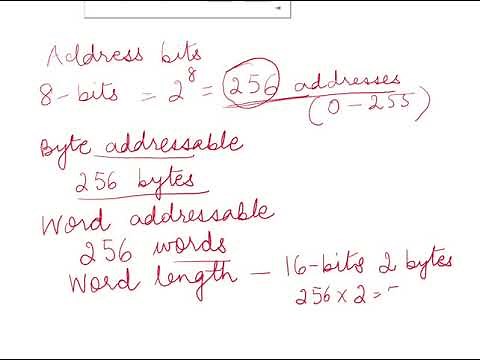 Address bits
8-bits = 2^8 = 256 addresses
(0-255)
Byte addressable
256 bytes
Word addressable
256 words
Word length - 16-bits 2 bytes
256 x 2 =